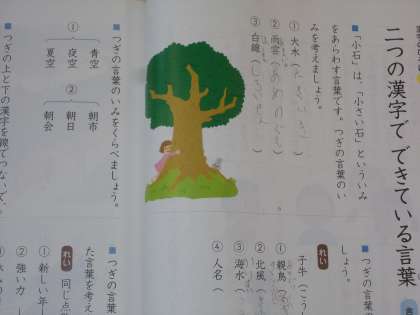 二つの漢字でできている言葉
■「小石」は、「小さい石」といういみ
をあらわす言葉です。つぎの言葉のい
みを考えましょう。
① 大木(
② 雨雲(あめのくも)
③ 白線(
■つぎの言葉
しょう。
れい 子牛(こう
① 親鳥(
② 北風(
③ 海水(
④ 人名(
■つぎの言葉のいみをくらべましょう。
① 青空
夜空
夏空
② 朝市
朝日
朝会
■つぎの上と下の漢字を線でつないで、
■つぎの言葉
た言葉を考え
れい 同じ点
① 新しい年
② 強い力